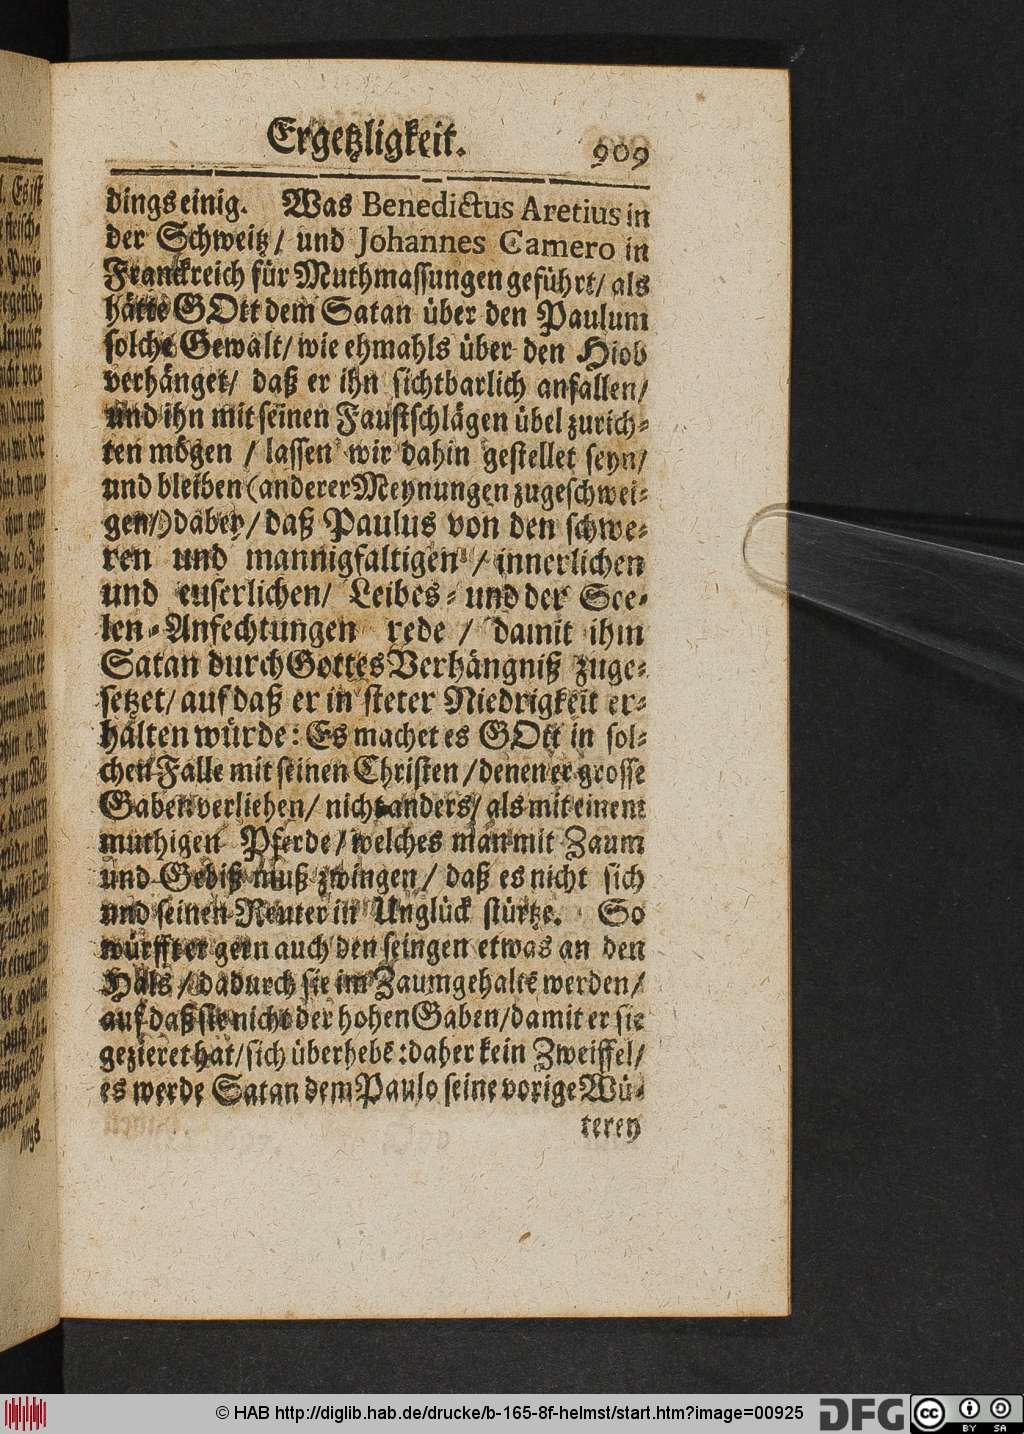 Ergetzligkeit. 909
dings einig. Was Benedictus Aretius in
der Schweitz/ und Johannes Camero in
Franckreich für Muthmassungen geführt/ als
hätte GOtt dem Satan über den Paulum
solche Gewalt/ wie ehmahls über den Hiob
verhänget/ daß er ihn sichtbarlich anfallen/
und ihn mit seinen Faustschlägen übel zurich-
ten mögen / lassen wir dahin gestellet seyn/
und bleiben (anderer Meynungen zugeschwei-
gen/) dabey/ daß Paulus von den schwe-
ren und mannigfaltigen / innerlichen
und euserlichen/ Leibes- und der See-
len-Anfechtungen rede / damit ihm
Satan durch Gottes Verhängniß zuge-
setzet/ auf daß er in steter Niedrigkeit er-
halten würde: Es machet es GOtt in sol-
chen Falle mit seinen Christen / denen er grosse
Gaben verliehen/ nicht anders/ als mit einem
muthigen Pferde / welches man mit Zaum
und Gebiß muß zwingen/ daß es nicht sich
und seinen Reuter in Unglück stürtze. So
würfft er gern auch den seingen etwas an den
Hals / dadurch sie im Zaum gehalte werden/
auf daß sie nicht der hohen Gaben/ damit er sie
gezieret hat/ sich überhebe: daher kein Zweiffel/
es werde Satan dem Paulo seine vorige Wü-
terey
© HAB http://diglib.hab.de/drucke/b-165-8f-helmst/start.htm?image=00925 DFG cc BY SA